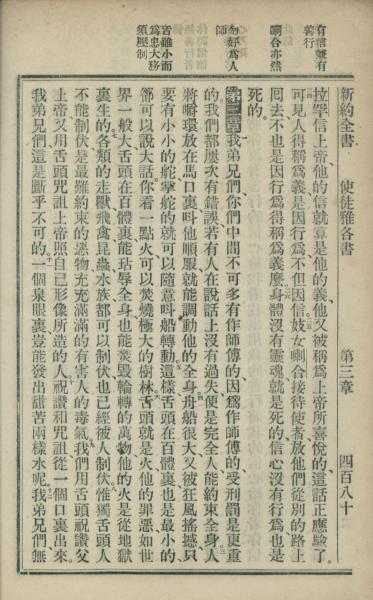 新約全書
使徒雅各書
第三章
四百八十
有信兼有
善行
喇合亦然
勿好爲人
師
舌雖小而
爲患大務
須壓制
拉罕信上帝他的信就算是他的義他又被稱爲上帝所喜悅的這話正應驗了
可見人得稱爲義是因行爲不但因信妓女喇合接待使者放他們從別的路上
囘去不也是因行爲得稱爲義麼身體沒有靈魂就是死的信心沒有行爲也是
死的
第三章我弟兄們你們中間不可多有作師傅的因爲作師傅的受刑罰是更重
的我們都屢次有錯誤若有人在說話上沒有過失便是完全人能約束全身人
將嚼環放在馬口裏呌他順服就能調動他的全身舟船很大又被狂風搖撼只
要有小小的舵掌舵的就可以隨意呌船轉動這樣舌頭在百體裏也是最小的
卻可以說大話你看一點火可以焚燒極大的樹林舌頭就是火他的罪惡如世
界一般大舌頭在百體裏能玷辱全身也能焚毀輪轉的萬物他的火是從地獄
裏生的各類的走獸飛禽昆蟲水族都可以制伏也已經被人制伏惟獨舌頭人
不能制伏是最難約束的惡物充充滿滿的有害人的毒氣我們用舌頭祝讚父
上帝又用舌頭咒詛上帝照自己形像所造的人祝讚和咒詛從一個口裏出來
我弟兄們這是斷乎不可的一個泉眼裏豈能發出甜苦兩樣水呢我弟兄們無